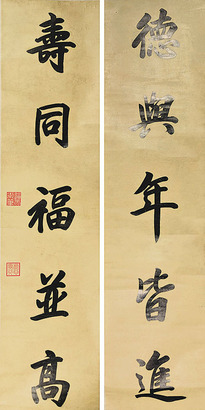 德與年皆進
壽同福並高